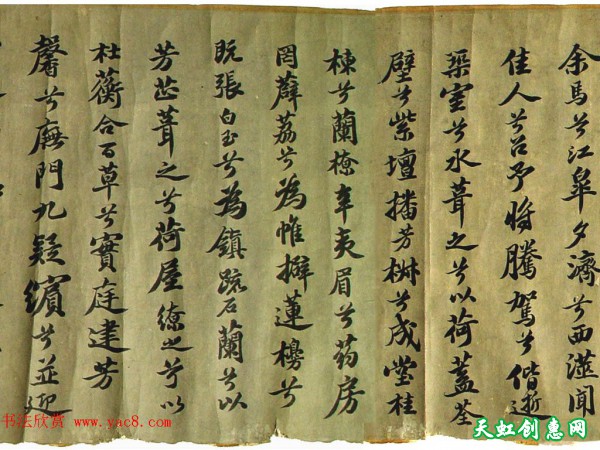 余馬兮江皋夕濟兮西澨聞
佳人兮召予將騰駕兮偕逝
室兮水葺之兮以荷蓋荃
壁兮紫壇播芳椒兮成堂桂
棟兮蘭橑辛夷眉兮葯房
罔薜荔兮為帷擗蓮櫋兮
既張白玉兮為鎮疏石蘭兮以
芳芷葺之兮荷屋繚之兮以
杜蘅合百草兮實庭建芳
馨兮廡門九疑繽兮並迎
书法欣赏 www.yac8.com
天虹创惠网